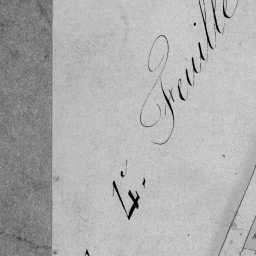 4.e Feuille